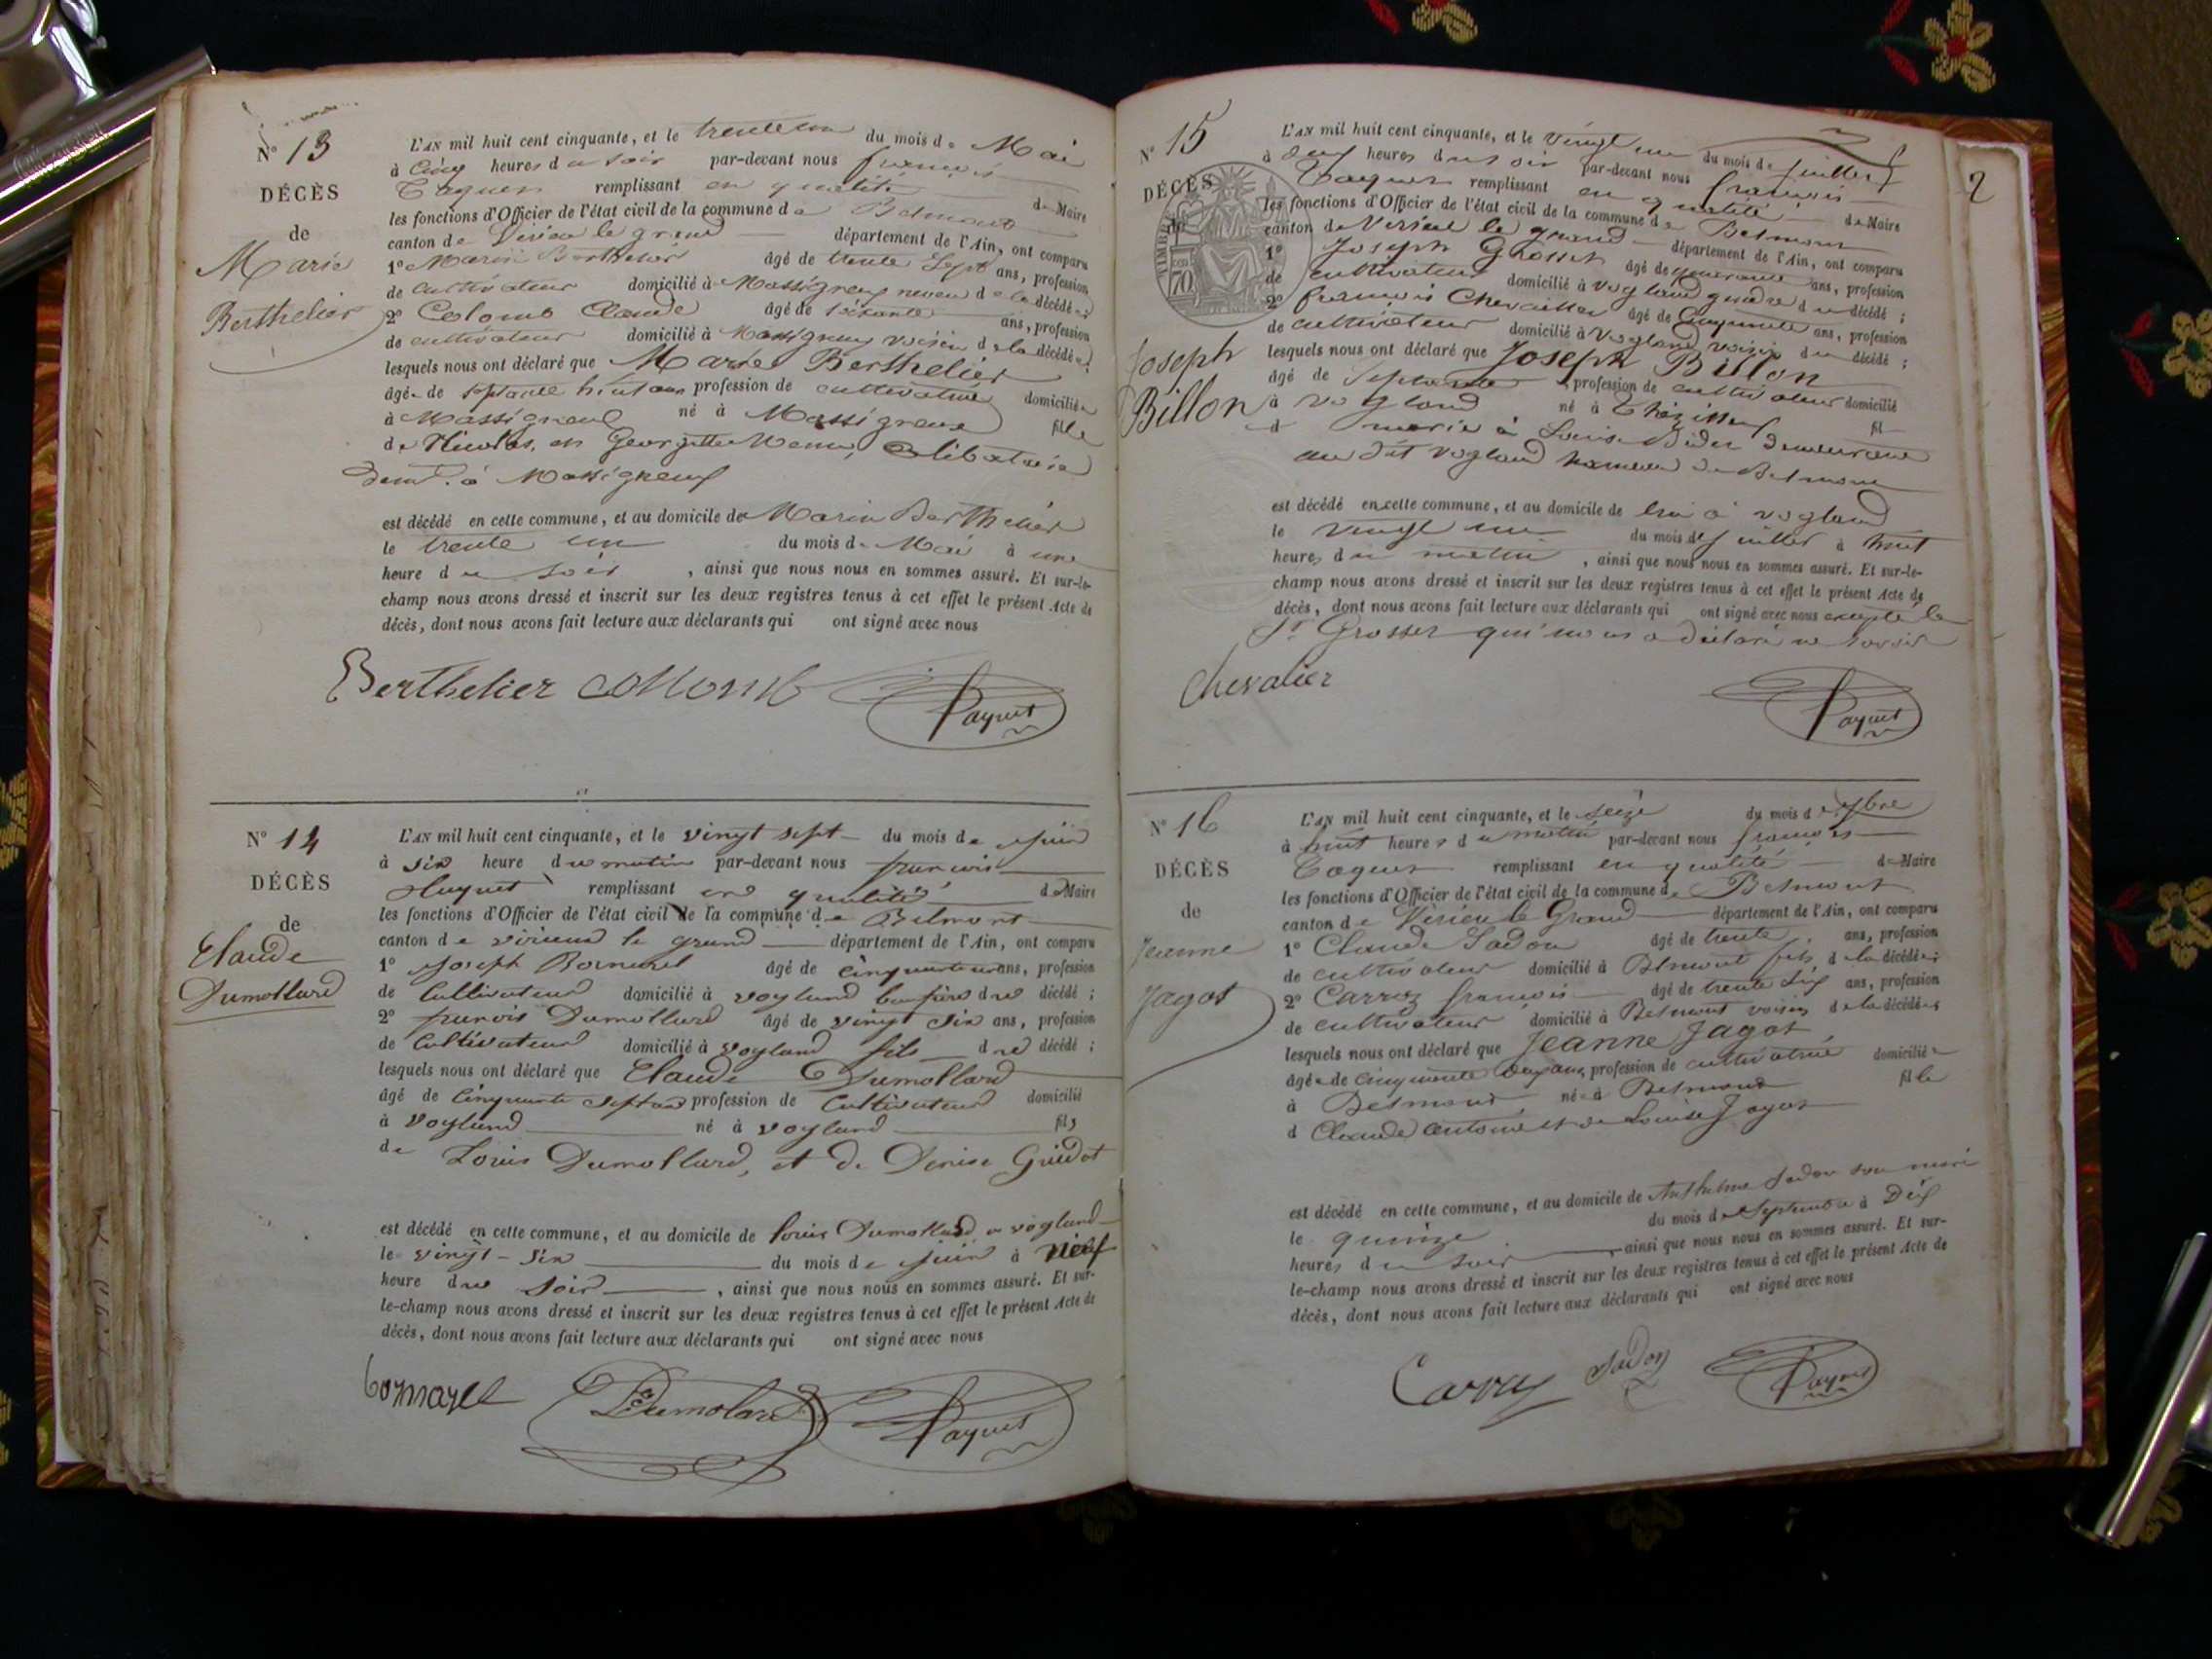 N° 13
DÉCÈS
de
Marie
Berthelier
L'AN mil huit cent cinquante, et le trente un du mois de Mai
à Cinq heures du soir par-devant nous françois
Paquet remplissant en qualité de Maire
les fonctions d'Officier de l'état civil de la commune de Belmont
canton de Virieu le grand département de l'Ain, ont comparu
1° Marin Berthelier âgé de trente Sept ans, profession
de cultivateur domicilié à Massigneux neveu de la décédée;
2° Colomb Claude âgé de soixante ans, profession
de cultivateur domicilié à Massigneux voisin de la décédée;
lesquels nous ont déclaré que Marie Berthelier
âgée de septante huit ans profession de cultivatrice domiciliée
à Massigneux né à Massigneux fille
de Nicolas, et Georgette célibataire
demt. à Massigneux
est décédé en cette commune, et au domicile de Marin Berthelier
le trente un du mois de Mai à une
heure du soir, ainsi que nous nous en sommes assuré. Et sur-le-
champ nous avons dressé et inscrit sur les deux registres tenus à cet effet le présent Acte de
décès, dont nous avons fait lecture aux déclarants qui ont signé avec nous
Berthelier Collomb Paquet
N° 14
DÉCÈS
de
Claude
Dumollard
L'AN mil huit cent cinquante, et le vingt sept du mois de juin
à six heure du matin par-devant nous françois
Paquet remplissant en qualité de Maire
les fonctions d'Officier de l'état civil de la commune de Belmont
canton de virieux le grand département de l'Ain, ont comparu
1° Joseph Bornarel âgé de cinquante un ans, profession
de Cultivateur domicilié à voyland beaufrère du décédé;
2° françois Dumollard âgé de vingt six ans, profession
de Cultivateur domicilié à voyland fils du décédé;
lesquels nous ont déclaré que Claude Dumollard
âgé de Cinquante sept ans profession de Cultivateur domicilié
à voyland né à voyland fils
de Louis Dumollard, et de Denise Guidot
est décédé en cette commune, et au domicile de Louis Dumollard a voyland
le vingt-six du mois de juin à neuf
heure du soir, ainsi que nous nous en sommes assuré. Et sur-
le-champ nous avons dressé et inscrit sur les deux registres tenus à cet effet le présent Acte de
décès, dont nous avons fait lecture aux déclarants qui ont signé avec nous
bornarel Dumolard Paquet
2
N° 15
DÉCÈS
de
TIMBRE
70
Joseph
Billon
L'AN mil huit cent cinquante, et le vingt un du mois de juillet
à heures du soir par-devant nous françois
Paquet remplissant en qualité de Maire
les fonctions d'Officier de l'état civil de la commune de Belmont
canton de Virieu le grand département de l'Ain, ont comparu
1° Joseph Grosset âgé de quarante ans, profession
de cultivateur domicilié à voyland gendre du décédé;
2° françois Chevallier âgé de Cinquante ans, profession
de cultivateur domicilié à voyland voisin du décédé;
lesquels nous ont déclaré que Joseph Billon
âgé de Septante profession de cultivateur domicilié
à voyland né à fil
d marié à Louise demeurant
au dit voyland hameau de Belmont
est décédé en cette commune, et au domicile de lui à voyland
le vingt un du mois de juillet à huit
heures du matin, ainsi que nous nous en sommes assuré. Et sur-le-
champ nous avons dressé et inscrit sur les deux registres tenus à cet effet le présent Acte de
décès, dont nous avons fait lecture aux déclarants qui ont signé avec nous excepté le
Sr. Grosset qui nous a déclaré ne savoir
Chevalier Paquet
N° 16
DÉCÈS
de
Jeanne
Jagot
L'AN mil huit cent cinquante, et le seize du mois de 7bre
à huit heures du matin par-devant nous françois
Paquet remplissant en qualité de Maire
les fonctions d'Officier de l'état civil de la commune de Belmont
canton de Virieu le Grand département de l'Ain, ont comparu
1° Claude Sadon âgé de trente ans, profession
de cultivateur domicilié à Belmont fils de la décédée;
2° Carroz françois âgé de trente six ans, profession
de cultivateur domicilié à Belmont voisin de la décédée;
lesquels nous ont déclaré que Jeanne Jagot
âgée de cinquante ans, profession de cultivatrice domiciliée
à Belmont née à Belmont fille
d Claude antoine et de Louise Jagot
est décédé en cette commune, et au domicile de Anthelme Sadon son mari
le quinze du mois de Septembre à Dix
heures du soir, ainsi que nous nous en sommes assuré. Et sur-
le-champ nous avons dressé et inscrit sur les deux registres tenus à cet effet le présent Acte de
décès, dont nous avons fait lecture aux déclarants qui ont signé avec nous
Carroz Sadon Paquet